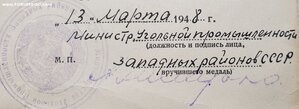 "13" Марта 1948 г.
Министр Угольной промышленности
(должность и подпись лица,
М. П. западных районов СССР.
вручившего медаль)